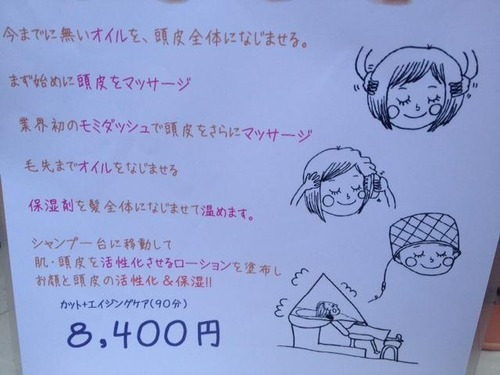 今までに無いオイルを、頭皮全体になじませる。
まず始めに頭皮をマッサージ
業界初のモミダッシュで頭皮をさらにマッサージ
毛先までオイルをなじませる
保湿剤を髪全体になじませて温めます。
シャンプー台に移動して
肌・頭皮を活性化させるローションを塗布し
お顔と頭皮の活性化&保湿!!
カット+エイジングケア(90分)
8,400円